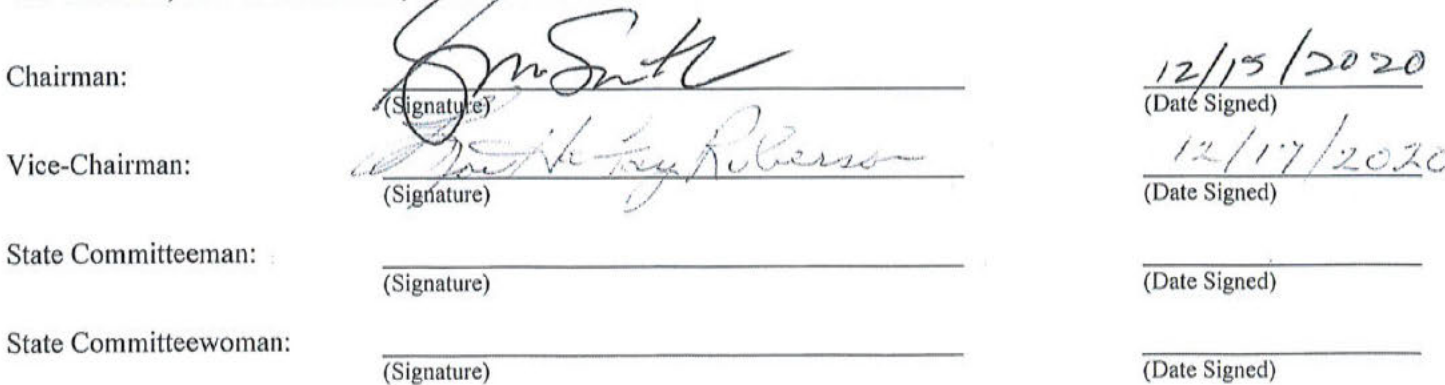 Chairman: Smith 12/15/2020
(Signature) (Date Signed)
Vice-Chairman: Fay Roberson 12/17/2020
(Signature) (Date Signed)
State Committeeman:
(Signature) (Date Signed)
State Committeewoman:
(Signature) (Date Signed)